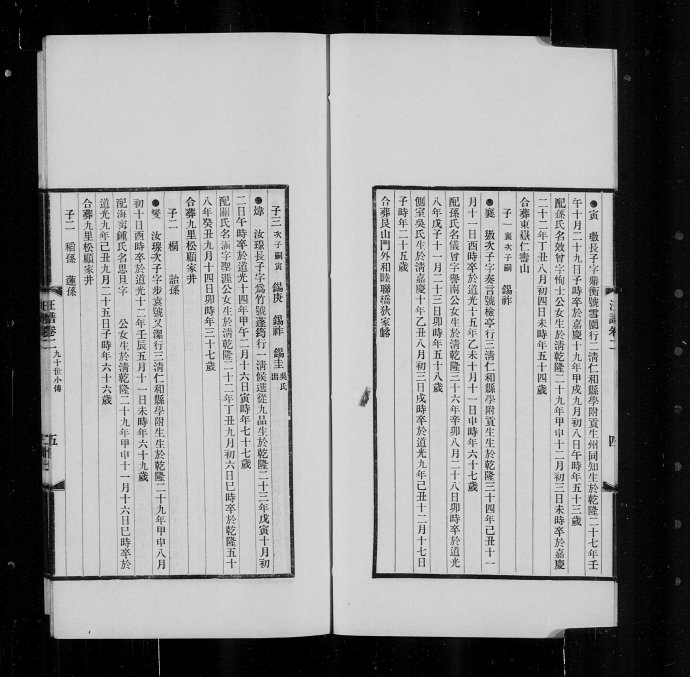 寅 璥長子字鼎衡號雪園行二清仁和縣學附貢生州同知生於乾隆二十七年壬
午十月二十九日子時卒於嘉慶十九年甲戌九月初八日午時年五十三歲
配孫氏名效曾字恂士公女生於清乾隆二十九年甲申十二月初三日未時卒於嘉慶
二十二年丁丑八月初四日未時年五十四歲
合葬東嶽仁壽山
子一 襄次子嗣 錫祚
襄 璥次子字奏言號檢亭行三清仁和縣學附貢生生於乾隆三十四年己丑十一
月十一日酉時卒於道光十五年乙未十月十一日申時年六十七歲
配孫氏名儀曾字譽南公女生於清乾隆三十六年辛卯八月二十八日卯時卒於道光
八年戊子十一月二十三日卯時年五十八歲
側室吳氏生於清嘉慶十年乙丑八月初三日戌時卒於道光九年己丑十二月十七日
子時年二十五歲
合葬艮山門外和睦聯橋狄家
四
子三 次子嗣寅 錫庚 錫祚 錫圭 吳氏出
煒 汝瑮長子字爲竹號蓬筠行一清候選從九品生於乾隆二十三年戊寅十月初
二日午時卒於道光十四年甲午二月十六日寅時年七十七歲
配關氏名 字聖涯公女生於清乾隆二十二年丁丑九月初六日巳時卒於乾隆五十
八年癸丑九月十四日卯時年三十七歲
合葬九里松顧家井
子二 桐 詒孫
燮 汝瑮次子字步袁號又潔行三清仁和縣學附生生於乾隆二十九年甲申八月
初十日酉時卒於道光十二年壬辰五月十一日未時年六十九歲
配海甯鍾氏名思且字 公女生於清乾隆二十九年甲申十一月十六日巳時卒於
道光九年己丑九月二十五日子時年六十六歲
合葬九里松顧家井
子二 稻孫 蓮孫
汪譜卷二 九十世小傳
五